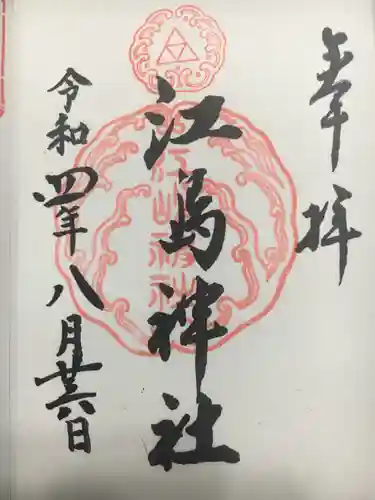 奉拝
江島神社
令和四年八月廿六日
江島神社